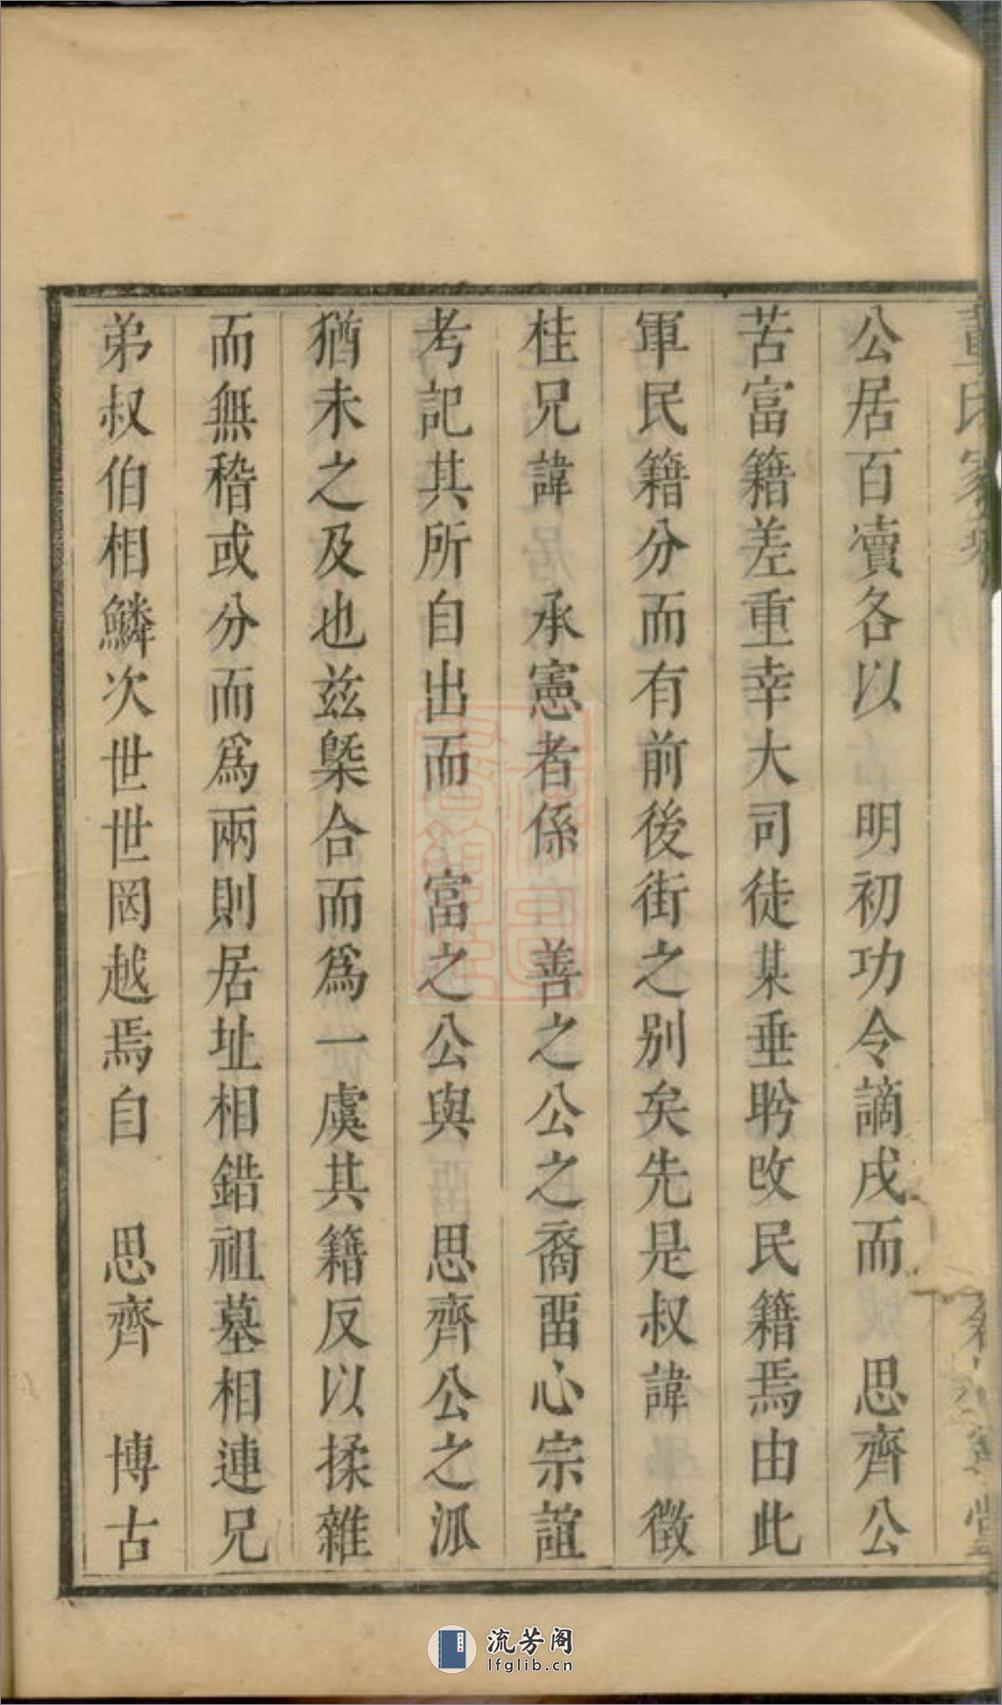 公居百瀆各以　明初功令謫戍而　思齊公
苦富籍差重幸大司徒某垂盻改民籍焉由此
軍民籍分而有前後街之別矣先是叔諱　徵
桂兄諱　承憲者係　善之公之裔畱心宗誼
考記其所自出而　富之公與　思齊公之派
猶未之及也兹槩合而爲一虞其籍反以揉雜
而無稽或分而爲兩則居址相錯祖墓相連兄
弟叔伯相鱗次世世罔越焉自　思齊　博古
流芳阁
lfglib.cn